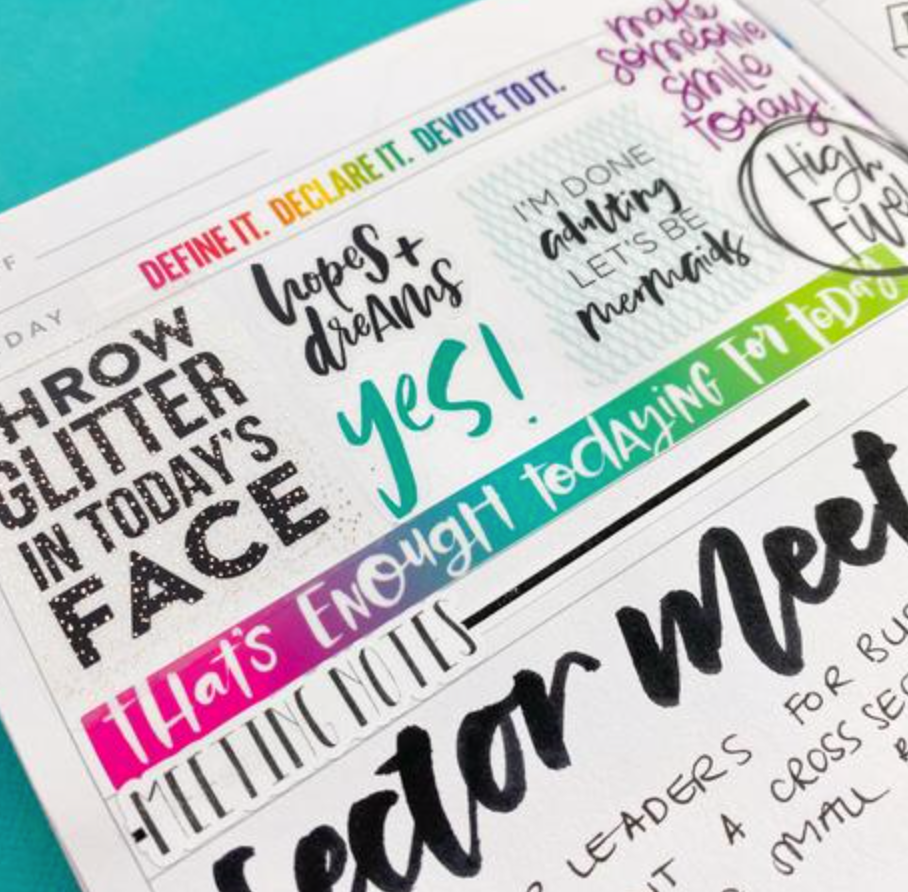 make
someone
smile
today!
DEFINE IT. DECLARE IT. DEVOTE TO IT.
High
Five!
F
DAY
HROW
GLITTER
IN TODAY'S
FACE
hopes +
dreAms
yes!
I'M DONE
adulting
LET'S BE
mermaids
THat's ENOugH todAyiNg For toDay
MEETING NOTES
Sector meet
LEADERS FOR BUS
A CROSS SEC
SMALL B